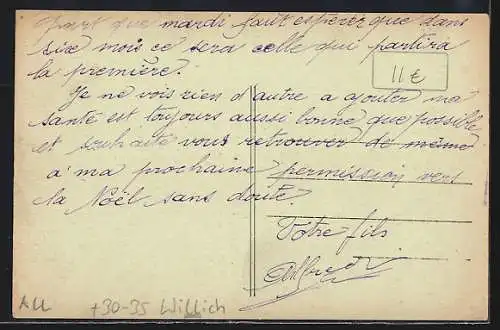 part que mardi faut espérer que dans
six mois ce sera celle qui partira
la première.
11 €
Je ne vois rien d'autre a ajouter ma
santé est toujours aussi bonne que possible
et souhaite vous retrouver de même
a' ma prochaine permission vers
la Noël sans doute.
Vôtre fils
Alfred
All +30-35 Willich